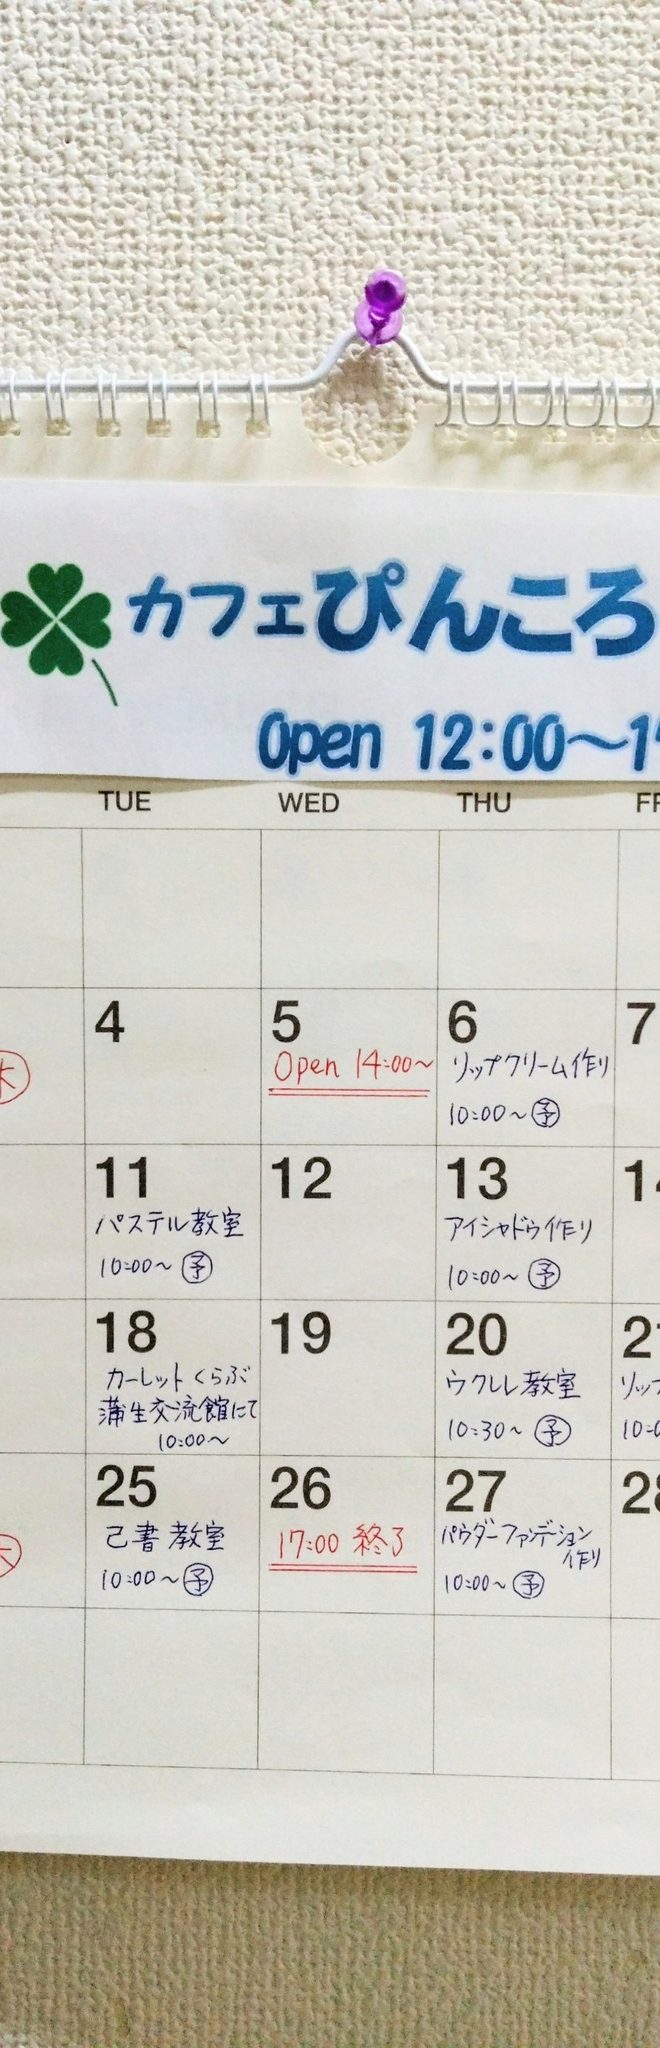 カフェぴんころ
Open 12:00～1
TUE WED THU
4 5 6 7
Open 14:00～
リップクリーム作り
10:00～ 予
11 12 13
パステル教室
10:00～ 予
アイシャドウ作り
10:00～ 予
18 19 20
カーレットくらぶ
蒲生交流館にて
10:00～
ウクレレ教室
10:30～ 予
リップ
25 26 27
己書教室
10:00～ 予
17:00 終了
パウダーファンデーション
作り
10:00～ 予